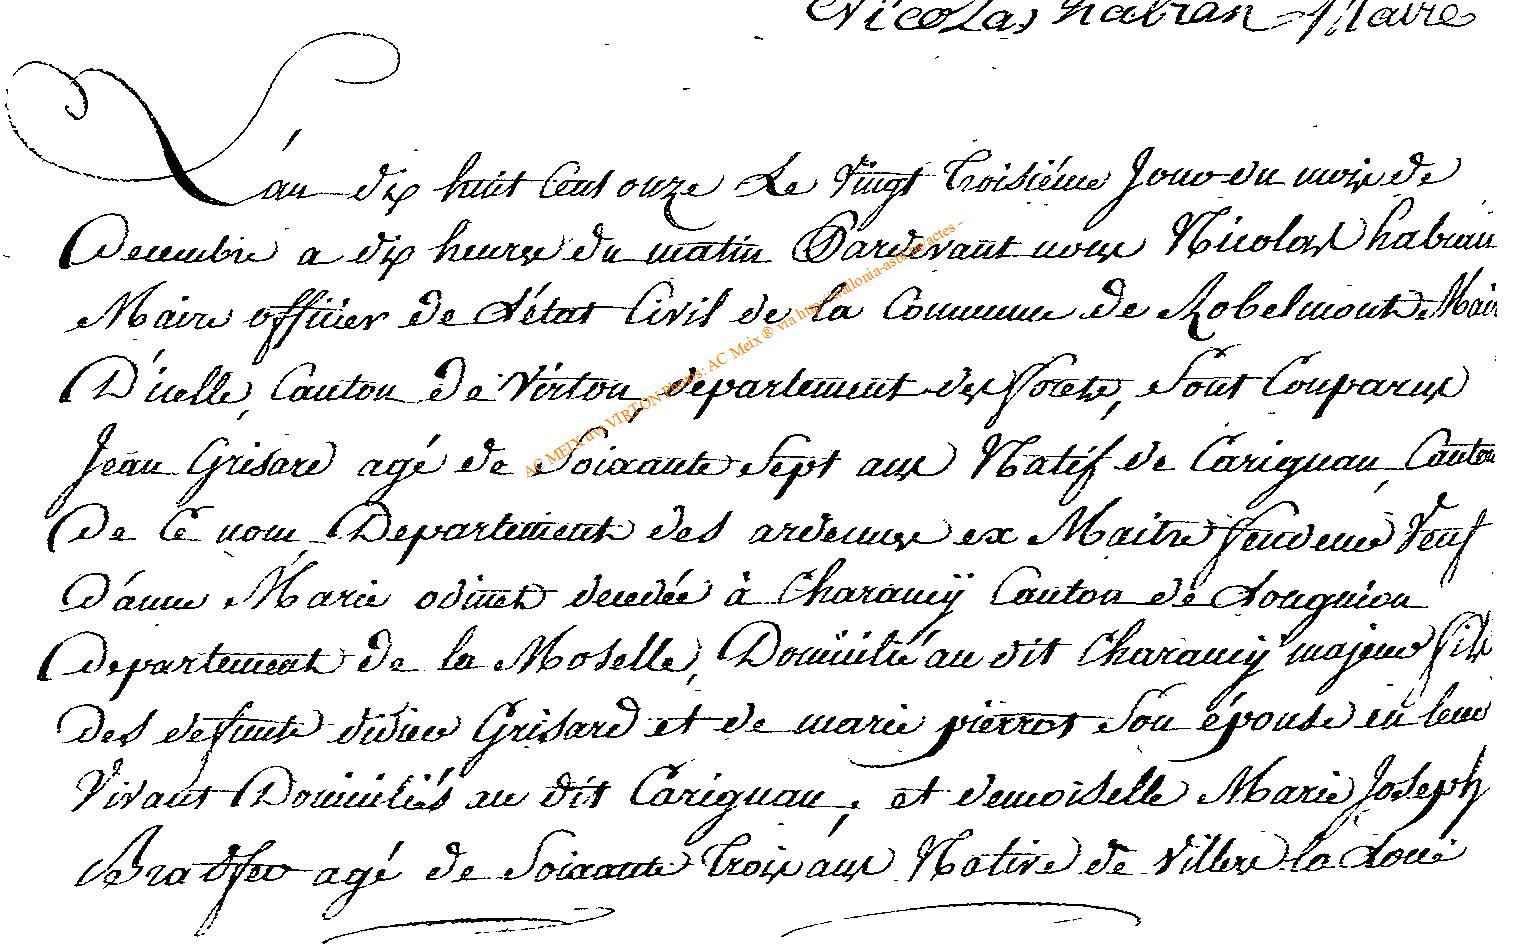 Nicolas habran Maire
L'an dix huit Cent onze Le Vingt Troisiéme Jour du mois de
Decembre a dix heures du matin Pardevant nous Nicolas habran
Maire officier de L'état Civil de la Commune de Robelmont Mair
D'icelle, Canton de Virton, departement des forets, Sont Comparus
Jean Grisard agé de Soixante Sept ans Natif de Carignan, Canton
De Ce nom Departement des ardennes ex Maitre Veuf
D'anne Marie odinet decedée à Charancÿ Canton de Longuion
Departement de la Moselle, Domicilié au dit Charancÿ majeur fils
des defunts didier Grisard et de marie pierrot Son épouse en leur
Vivant Domiciliés au dit Carignan, et demoiselle Marie Joseph
agé de Soixante Trois ans Native de Villers la Loue
AC MEIX dvt VIRTON Photos: AC Meix ® via